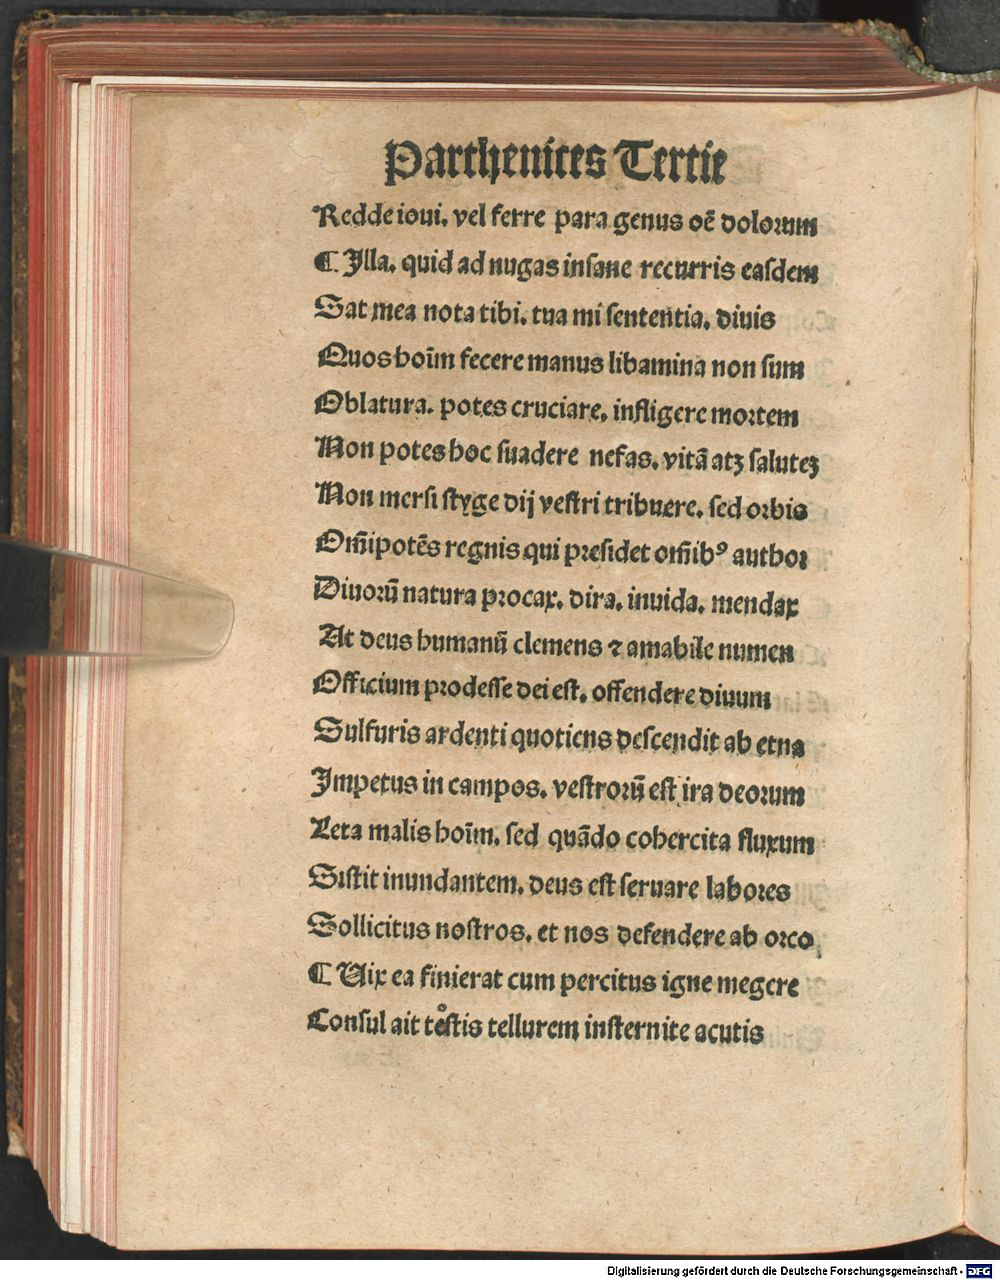 Parthenices Tertie
Redde ioui. vel ferre para genus oē dolorum
¶ Illa. quid ad nugas insane recurris easdem
Sat mea nota tibi. tua mi sententia. diuis
Quos hoīm fecere manus libamina non sum
Oblatura. potes cruciare. infligere mortem
Non potes hoc suadere nefas. vitā atꝫ saluteꝫ
Non mersi styge dij vestri tribuere. sed orbis
Om̄ipotēs regnis qui presidet om̄ibꝰ author
Diuorū natura procax. dira. inuida. mendax
At deus humanū clemens ⁊ amabile numen
Officium prodesse dei est. offendere diuum
Sulfuris ardenti quotiens descendit ab etna
Impetus in campos. vestrorū est ira deorum
Leta malis hoīm. sed quādo cohercita fluxum
Sistit inundantem. deus est seruare labores
Sollicitus nostros. et nos defendere ab orco
¶ Uix ea finierat cum percitus igne megere
Consul ait teͦstis tellurem insternite acutis
Digitalisierung gefördert durch die Deutsche Forschungsgemeinschaft - DFG